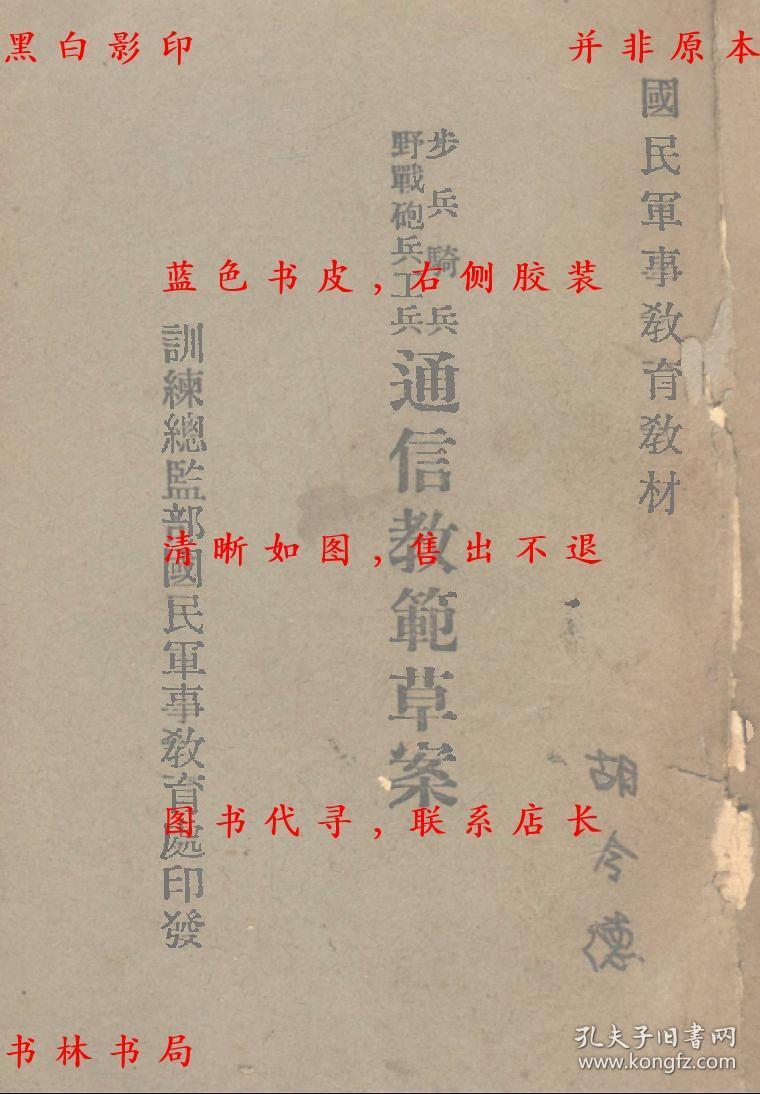 黑白影印
并非原本
國民軍事教育教材
步兵騎兵
野戰砲兵工兵
通信教範草案
訓練總監部國民軍事教育處印發
胡令德
蓝色书皮,右侧胶装
清晰如图,售出不退
图书代寻,联系店长
书林书局
孔夫子旧书网
www.kongfz.com